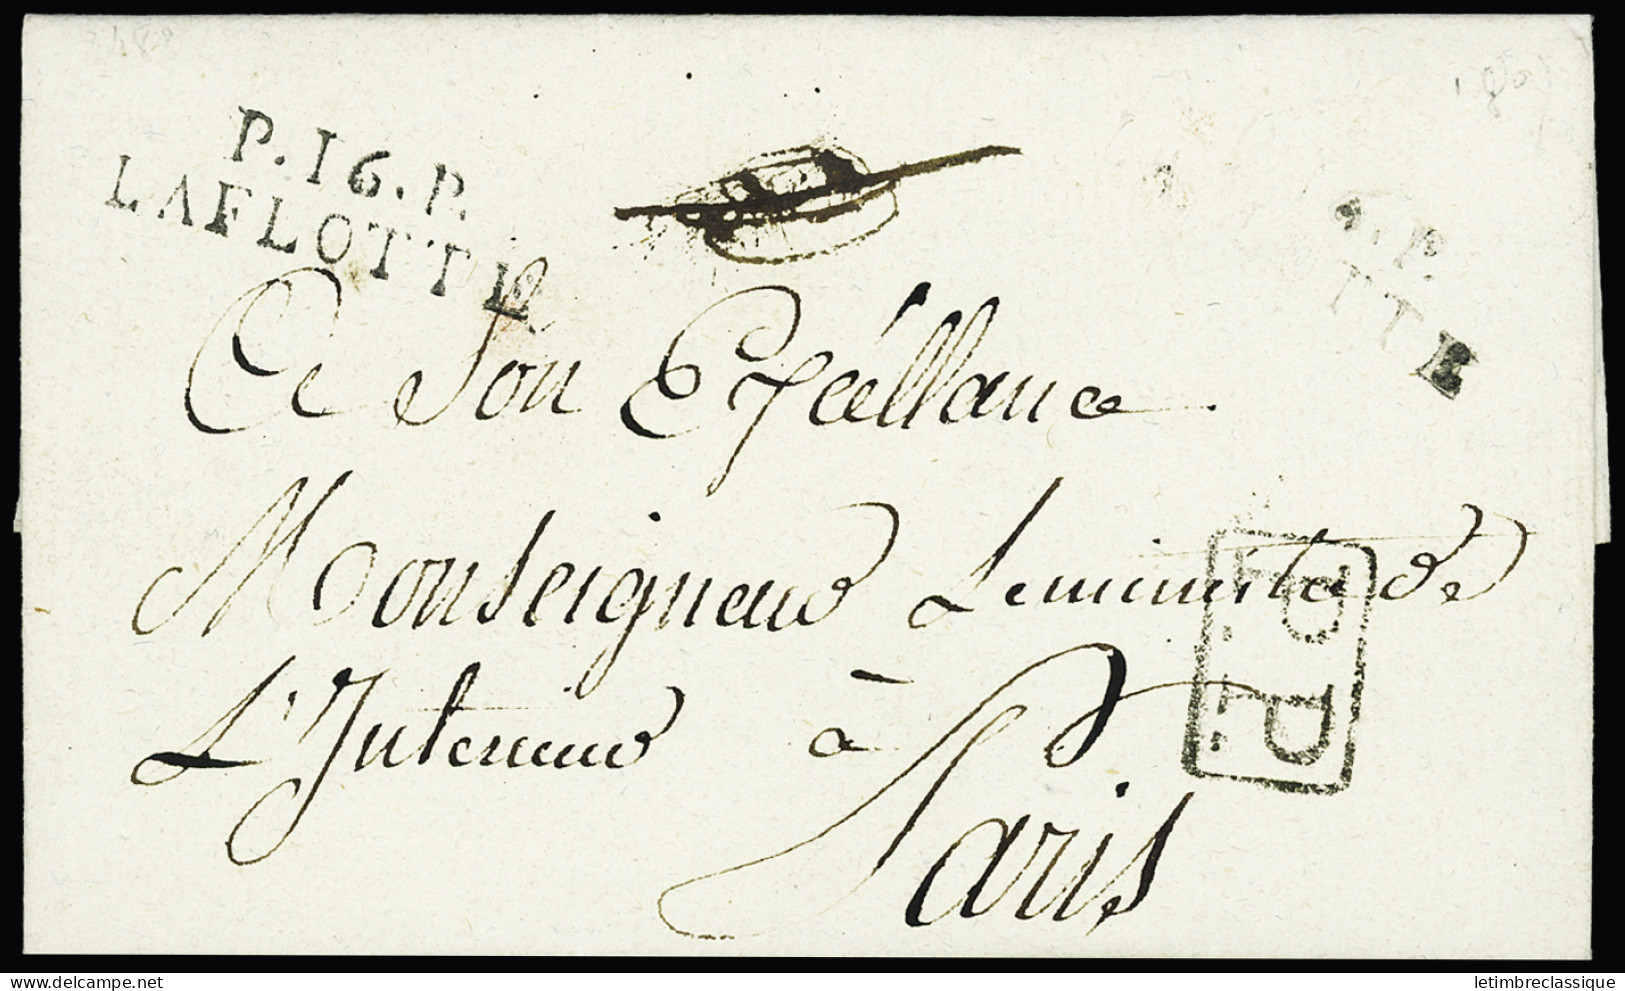 P.16.P.
LAFLOTTE
.P.
TTE
A Son Excéllance
Monseigneur Leministre de
L'Interieur à
Paris
P.P.
delcampe.net
letimbreclassique